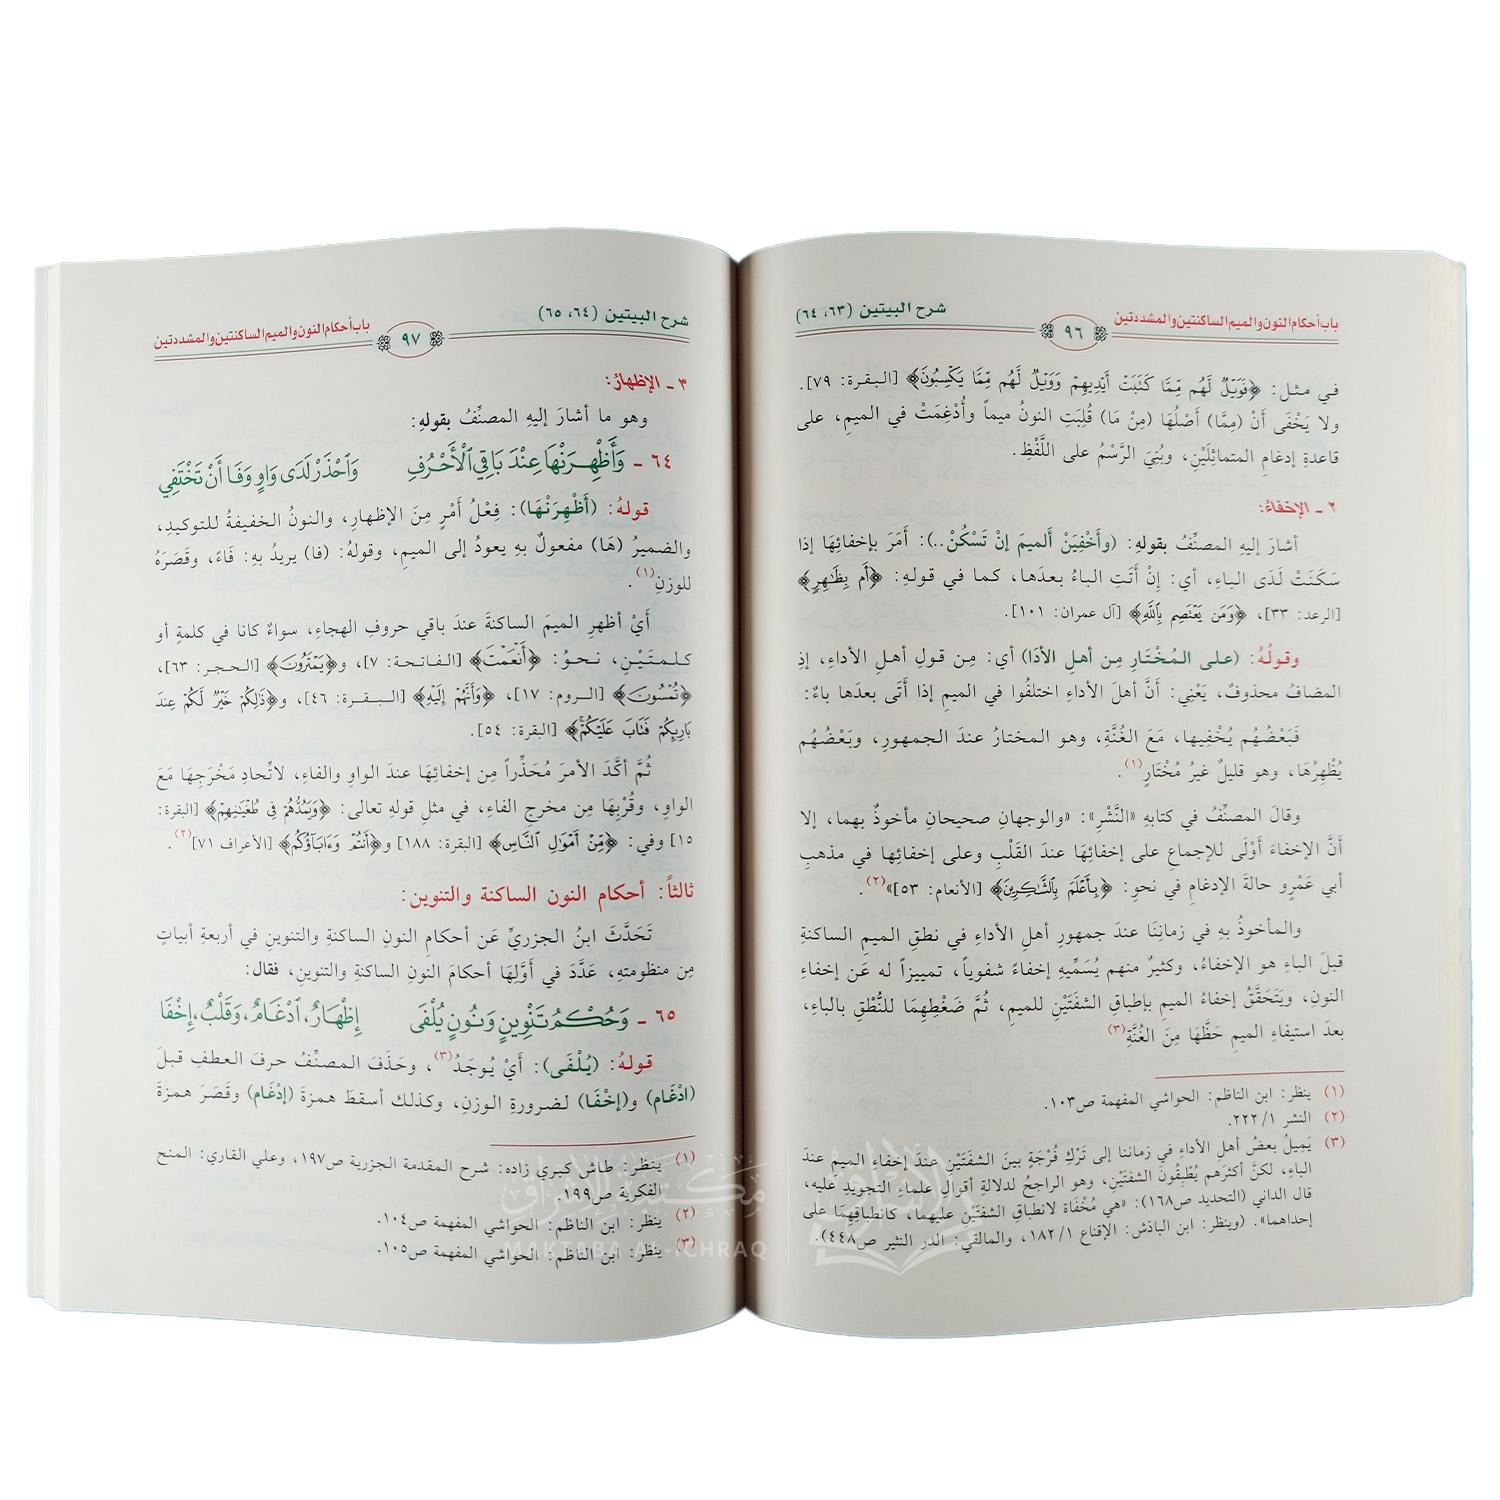 باب أحكام النون والميم الساكنتين والمشددتين ٩٦ شرح البيتين (٦٣، ٦٤)
في مثل: ﴿فَوَيْلٌ لَهُم مِّمَّا كَتَبَتْ أَيْدِيهِمْ وَوَيْلٌ لَهُم مِّمَّا يَكْسِبُونَ﴾ [البقرة: ٧٩].
ولا يَخْفَى أَنْ (مِمَّا) أَصْلُهَا (مِنْ مَا) قُلِبَتِ النونُ ميماً وأُدْغِمَتْ في الميمِ، على
قاعدةِ إدغامِ المتماثِلَيْنِ، وبُنِيَ الرَّسْمُ على اللَّفْظِ.
٢ ـ الإخفاءُ:
أشارَ إليهِ المصنِّفُ بقولهِ: (وأَخْفِيَنْ ألميمَ إنْ تَسْكُنْ..): أَمَرَ بإخفائِها إذا
سَكَنَتْ لَدَى الباءِ، أي: إنْ أَتَتِ الباءُ بعدَها، كما في قولهِ: ﴿أَم بِظَاهِرٍ﴾
[الرعد: ٣٣]، ﴿وَمَن يَعْتَصِم بِاللَّهِ﴾ [آل عمران: ١٠١].
وقولُهُ: (على المُخْتَارِ مِن أهلِ الأدَا) أي: مِن قولِ أهلِ الأداءِ، إذِ
المضافُ محذوفٌ، يَعْنِي: أَنَّ أهلَ الأداءِ اختلفُوا في الميمِ إذا أَتَى بعدَها باءٌ:
فَبَعْضُهُم يُخْفِيها، مَعَ الغُنَّةِ، وهو المختارُ عندَ الجمهورِ، وبَعْضُهُم
يُظْهِرُهَا، وهو قليلٌ غيرُ مُخْتَارٍ(١).
وقالَ المصنِّفُ في كتابهِ «النَّشْرِ»: «والوجهانِ صحيحانِ مأخوذٌ بهما، إلا
أَنَّ الإخفاءَ أَوْلَى للإجماعِ على إخفائِهَا عندَ القَلْبِ وعلى إخفائِها في مذهبِ
أبي عَمْرٍو حالةَ الإدغامِ في نحوِ: ﴿بِأَعْلَمَ بِالشَّاكِرِينَ﴾ [الأنعام: ٥٣]»(٢).
والمأخوذُ بهِ في زمانِنَا عندَ جمهورِ أهلِ الأداءِ في نطقِ الميمِ الساكنةِ
قبلَ الباءِ هو الإخفاءُ، وكثيرٌ منهم يُسَمِّيهِ إخفاءً شفوياً، تمييزاً له عَن إخفاءِ
النونِ، ويَتَحَقَّقُ إخفاءُ الميمِ بإطباقِ الشفتَيْنِ للميمِ، ثُمَّ ضَغْطِهِمَا للنُّطْقِ بالباءِ،
بعدَ استيفاءِ الميمِ حَظَّهَا مِنَ الغُنَّةِ(٣)
(١) ينظر: ابن الناظم: الحواشي المفهمة ص١٠٣.
(٢) النشر ٢٢٢/١.
(٣) يَمِيلُ بعضُ أهلِ الأداءِ في زماننا إلى تَرْكِ فُرْجَةٍ بينَ الشفتَيْنِ عندَ إخفاءِ الميمِ عندَ
الباءِ، لكنَّ أكثرَهم يُطْبِقُونَ الشفتَيْنِ، وهو الراجحُ لدلالةِ أقوالِ علماءِ التجويدِ عليه،
قال الداني (التحديد ص١٦٨): «هي مُخْفَاة لانطباقِ الشفتَيْنِ عليهما، كانطباقِهِمَا على
إحداهما». (وينظر: ابن الباذش: الإقناع ١٨٢/١، والمالقي: الدر النثير ص٤٤٨).
شرح البيتين (٦٤، ٦٥) ٩٧ باب أحكام النون والميم الساكنتين والمشددتين
٣ ـ الإظهارُ:
وهو ما أشارَ إليهِ المصنِّفُ بقولهِ:
٦٤ ـ وَأَظْهِرَنْهَا عِنْدَ بَاقِي الْأَحْرُفِ وَاحْذَرْ لَدَى وَاوٍ وَفَا أَنْ تَخْتَفِي
قولهُ: (أَظْهِرَنْهَا): فِعْلُ أَمْرٍ مِنَ الإظهارِ، والنونُ الخفيفةُ للتوكيدِ،
والضميرُ (هَا) مفعولٌ بهِ يعودُ إلى الميمِ، وقولهُ: (فا) يريدُ بهِ: فَاءً، وقَصَرَهُ
للوزنِ(١).
أَيْ أظهرِ الميمَ الساكنةَ عندَ باقي حروفِ الهجاءِ، سواءٌ كانا في كلمةٍ أو
كلمتَيْنِ، نحوُ: ﴿أَنْعَمْتَ﴾ [الفاتحة: ٧]، و﴿يَمْتَرُونَ﴾ [الحجر: ٦٣]،
﴿تُمْسُونَ﴾ [الروم: ١٧]، ﴿وَأَنَّهُمْ إِلَيْهِ﴾ [البقرة: ٤٦]، و﴿ذَلِكُمْ خَيْرٌ لَكُمْ عِندَ
بَارِئِكُمْ فَتَابَ عَلَيْكُمْ﴾ [البقرة: ٥٤].
ثُمَّ أكَّدَ الأمرَ مُحَذِّراً مِن إخفائِهَا عندَ الواوِ والفاءِ، لاتِّحادِ مَخْرَجِهَا مَعَ
الواوِ، وقُرْبِهَا مِن مخرجِ الفاءِ، في مثلِ قولهِ تعالى: ﴿وَيَمُدُّهُمْ فِي طُغْيَانِهِمْ﴾ [البقرة:
١٥] وفي: ﴿مِّنْ أَمْوَالِ النَّاسِ﴾ [البقرة: ١٨٨] و﴿أَنتُمْ وَءَابَاؤُكُمْ﴾ [الأعراف ٧١](٢).
ثالثاً: أحكام النون الساكنة والتنوين:
تَحَدَّثَ ابنُ الجزريِّ عَن أحكامِ النونِ الساكنةِ والتنوينِ في أربعةِ أبياتٍ
مِن منظومتهِ، عَدَّدَ في أَوَّلِهَا أحكامَ النونِ الساكنةِ والتنوينِ، فقال:
٦٥ ـ وَحُكْمُ تَنْوِينٍ وَنُونٍ يُلْفَى إِظْهَارٌ، ادْغَامٌ، وَقَلْبٌ، إِخْفَا
قولهُ: (يُلْفَى): أَيْ يُوجَدُ(٣)، وحَذَفَ المصنِّفُ حرفَ العطفِ قبلَ
(ادْغَام) و(إخْفَا) لضرورةِ الوزنِ، وكذلك أسقطَ همزةَ (إدْغَام) وقَصَرَ همزةَ
(١) ينظر: طاش كبري زاده: شرح المقدمة الجزرية ص١٩٧، وعلي القاري: المنح
الفكرية ص١٩٩.
(٢) ينظر: ابن الناظم: الحواشي المفهمة ص١٠٤.
(٣) ينظر: ابن الناظم: الحواشي المفهمة ص١٠٥.
مكتبة الإشراق
MAKTABA AL-ICHRAQ